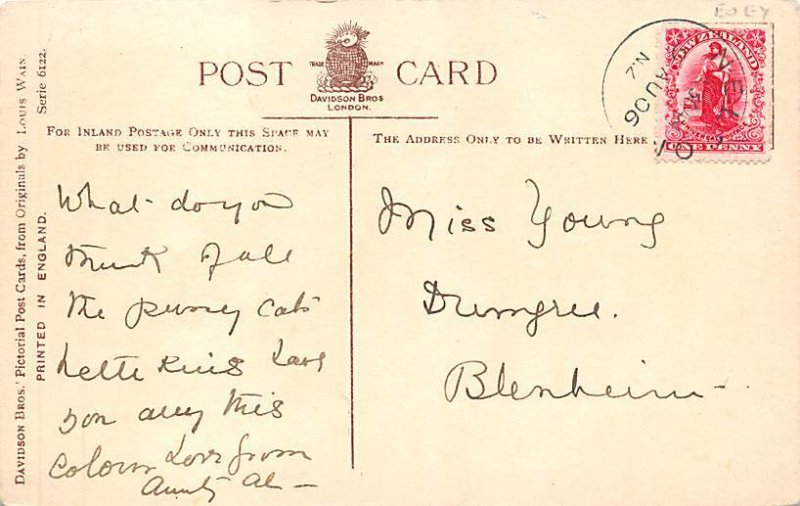 EOEY
POST CARD
TRADE MARK
DAVIDSON BROS
LONDON.
NEW ZEALAND
ONE PENNY
N.Z
AU 06
FOR INLAND POSTAGE ONLY THIS SPACE MAY
BE USED FOR COMMUNICATION.
THE ADDRESS ONLY TO BE WRITTEN HERE
What do you
think of all
the funny Cats
little Kings have
you any this
Colour Love from
Aunty Al —
Miss Young
Dumgree.
Blenheim
DAVIDSON BROS.' Pictorial Post Cards, from Originals by LOUIS WAIN. Serie 6122.
PRINTED IN ENGLAND.